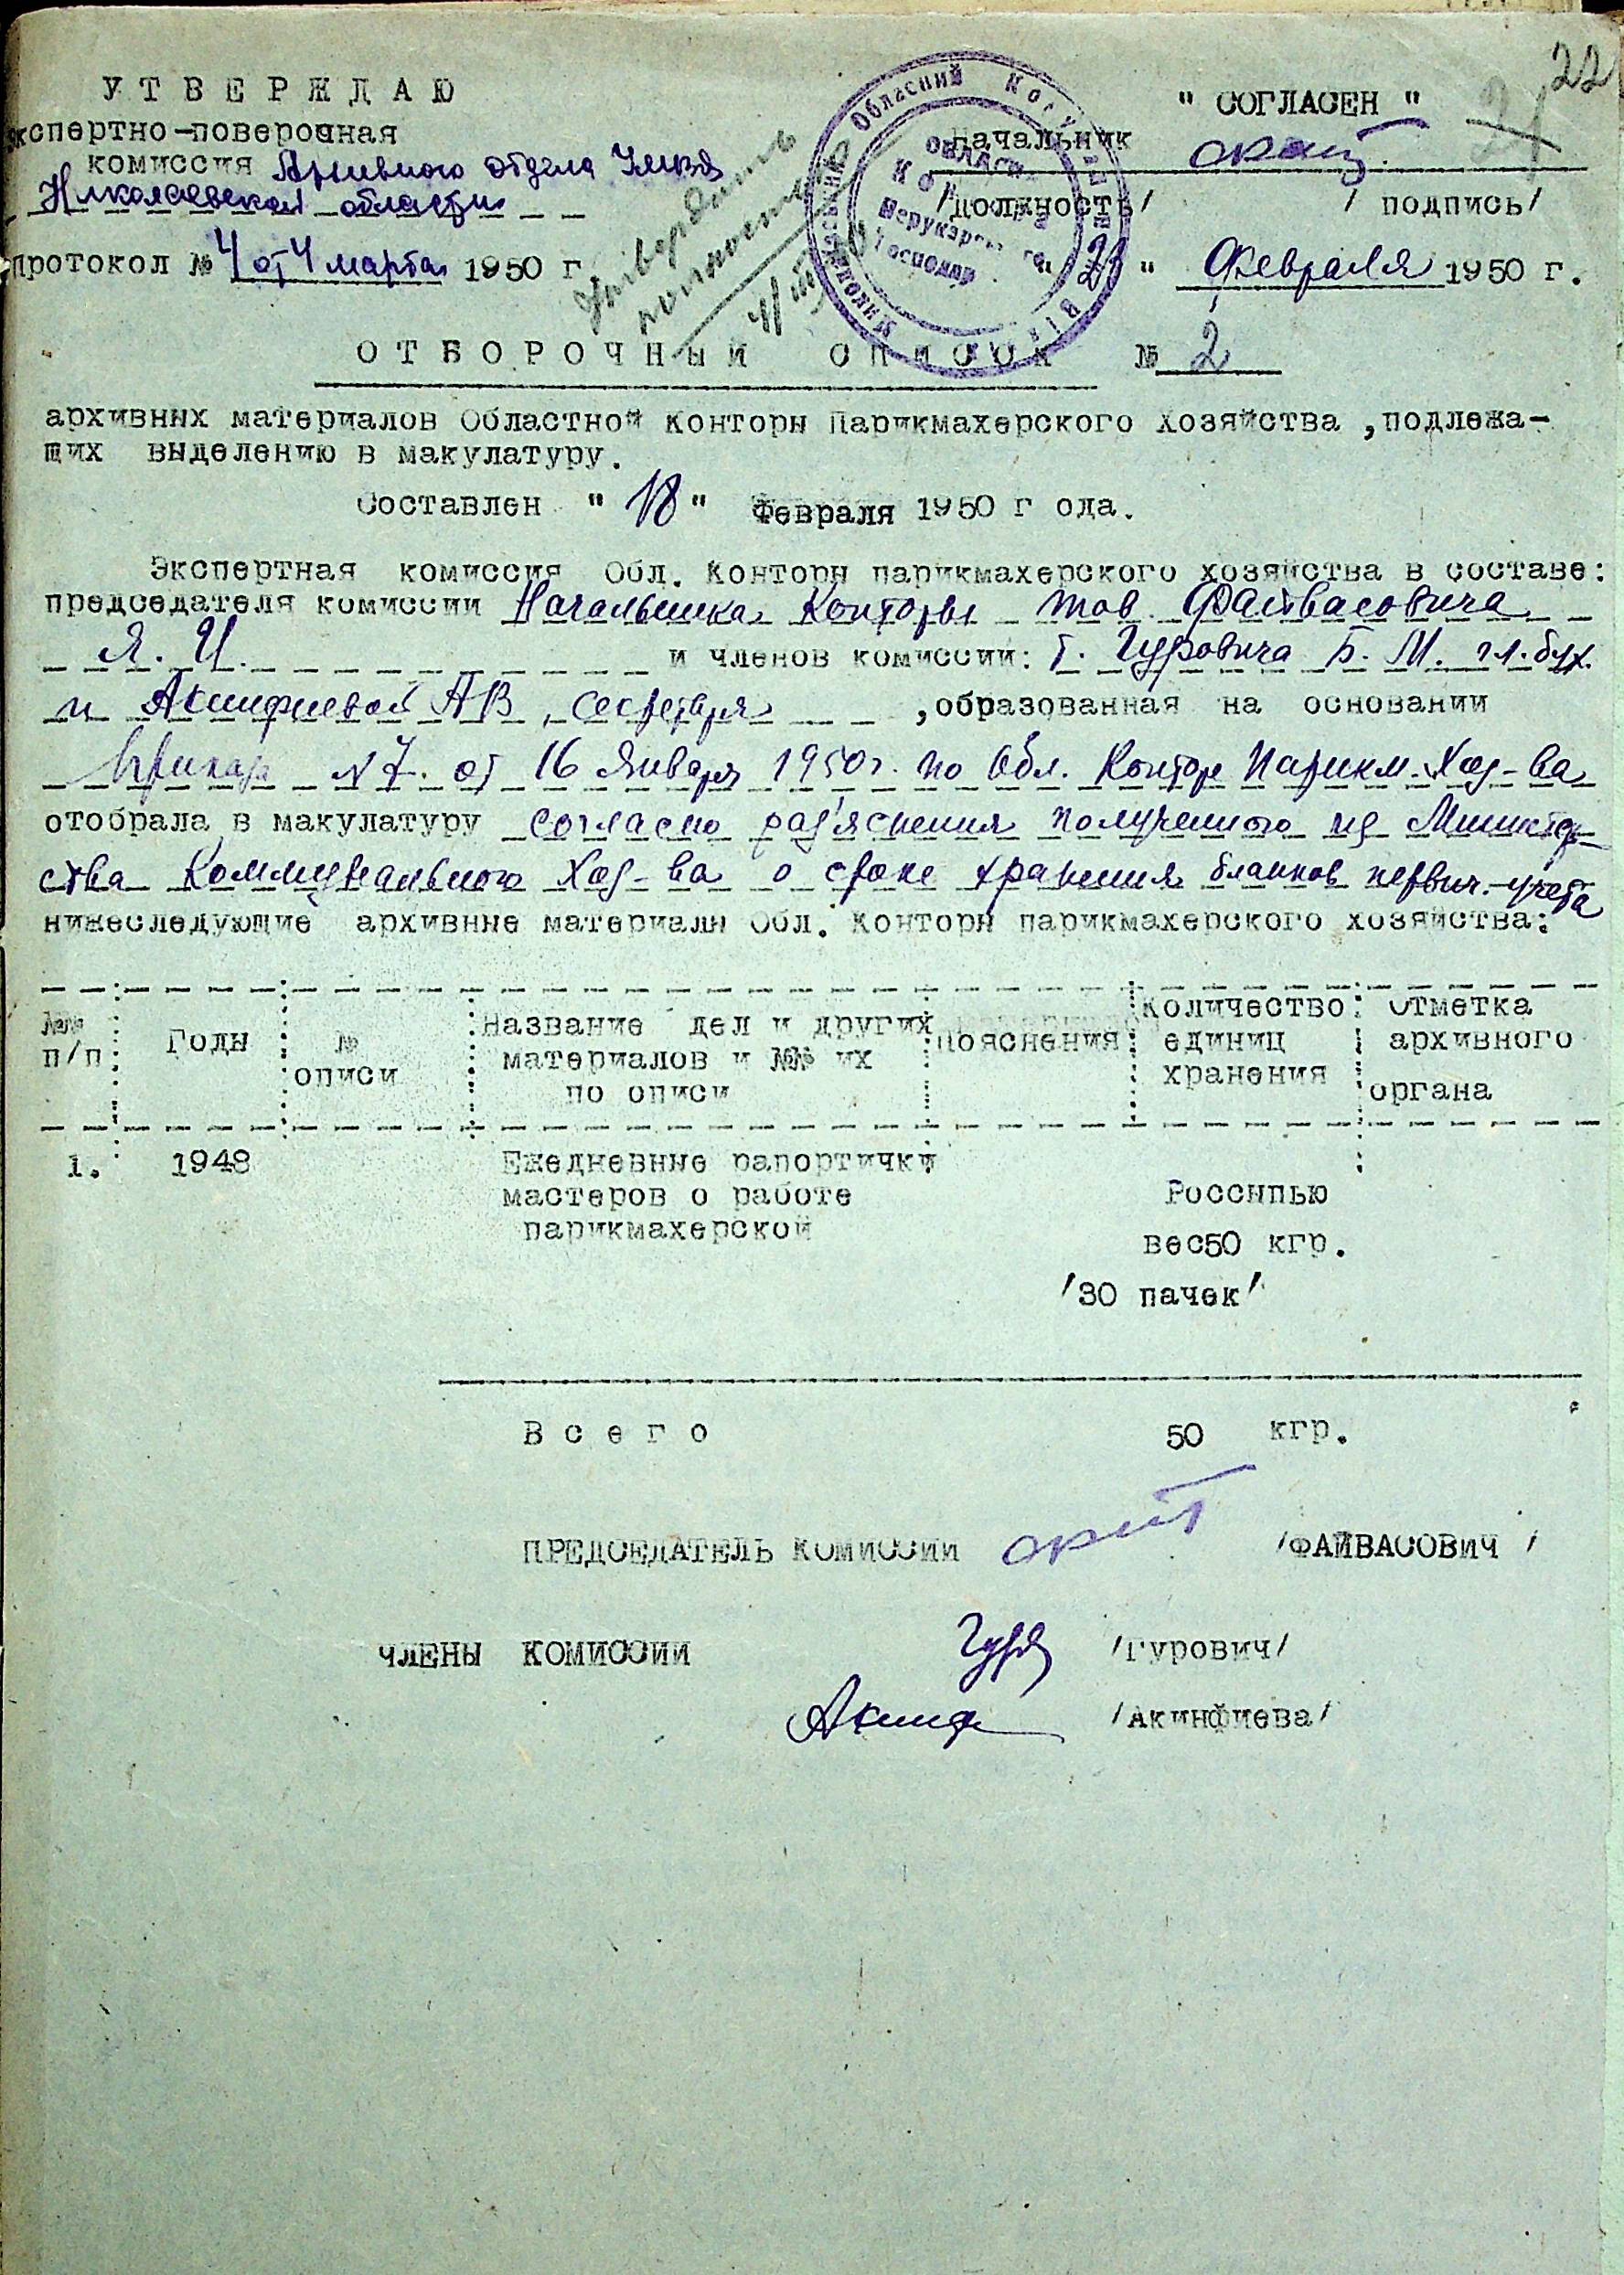 22
21
У Т В Е Р Ж Д А Ю
экспертно-поверочная
комиссия Архивного отдела УМВД
Николаевской области
протокол № 4 от 4 марта 1950 г.
Утвердить
полностью
4/III 50
" СОГЛАСЕН "
Начальник
/должность/ / подпись/
" 21 " февраля 1950 г.
О Т Б О Р О Ч Н Ы Й С П И С О К № 2
архивных материалов Областной Конторы Парикмахерского Хозяйства ,подлежа-
щих выделению в макулатуру.
Составлен " 18 " Февраля 1950 г ода.
Экспертная комиссия Обл. Конторы парикмахерского хозяйства в составе:
председателя комиссии Начальника Конторы тов. Файвасовича
Я. И. и членов комиссии: т. Гуровича Б. М. гл. бух.
и Акинфиевой А В , секретаря ,образованная на основании
Приказа N 7. от 16 Января 1950 г. по Обл. Конторе Парикм. Хоз-ва
отобрала в макулатуру согласно раз'яснения полученного из Министер-
ства Коммунального Хоз-ва о сроке хранения бланков первич. учета
нижеследующие архивные материалы Обл. Конторы парикмахерского хозяйства:
№№ п/п Годы № описи Название дел и других материалов и №№ их по описи Пояснения Количество единиц хранения Отметка архивного органа
1. 1948 Ежедневные рапортички
мастеров о работе Россыпью
парикмахерской
вес50 кгр.
/30 пачек/
В с е г о 50 кгр.
ПРЕДСЕДАТЕЛЬ КОМИССИИ /ФАЙВАСОВИЧ /
ЧЛЕНЫ КОМИССИИ /Гурович/
/Акинфиева/